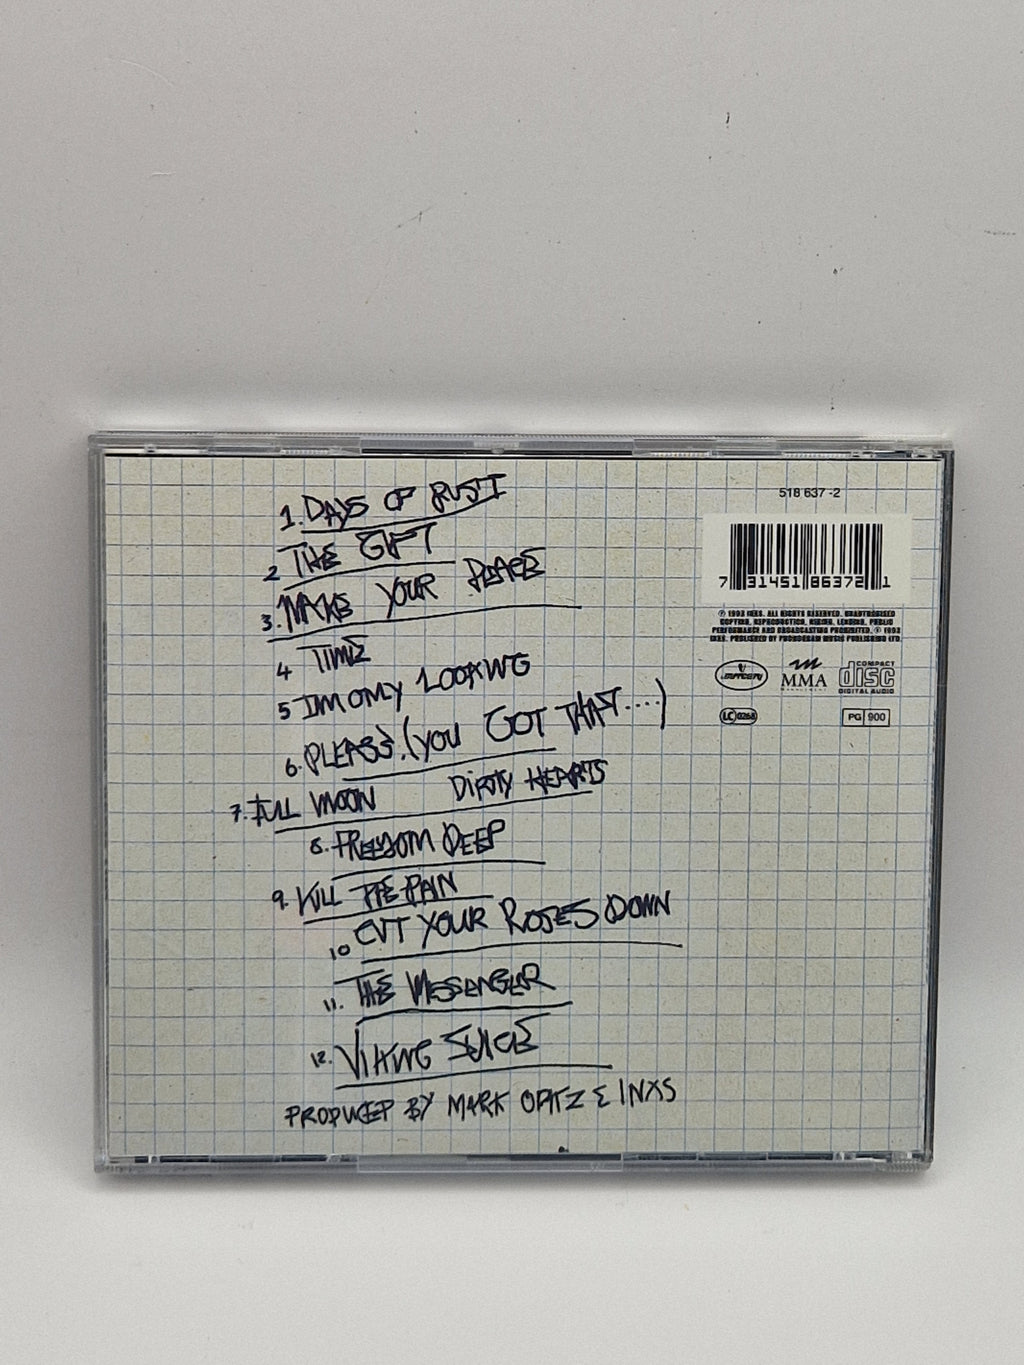 1. DAYS OF RUST
2 THE GIFT
3. MAKE YOUR PEACE
4 TIME
5 IM ONLY LOOKING
6. PLEASE. (YOU GOT THAT....)
7. FULL MOON DIRTY HEARTS
8. FREEDOM DEEP
9. KILL THE PAIN
10 CUT YOUR ROSES DOWN
11. THE MESSENGER
12. VIKING JUICE
PRODUCED BY MARK OPITZ & INXS
518 637-2
7 31451 86372 1
℗ 1993 INXS. ALL RIGHTS RESERVED. UNAUTHORISED
COPYING, REPRODUCTION, HIRING, LENDING, PUBLIC
PERFORMANCE AND BROADCASTING PROHIBITED. © 1993
INXS. PUBLISHED BY PHONOGRAM MUSIC PUBLISHING LTD.
mercury
MMA
MANAGEMENT
COMPACT
disc
DIGITAL AUDIO
LC 0268
PG 900